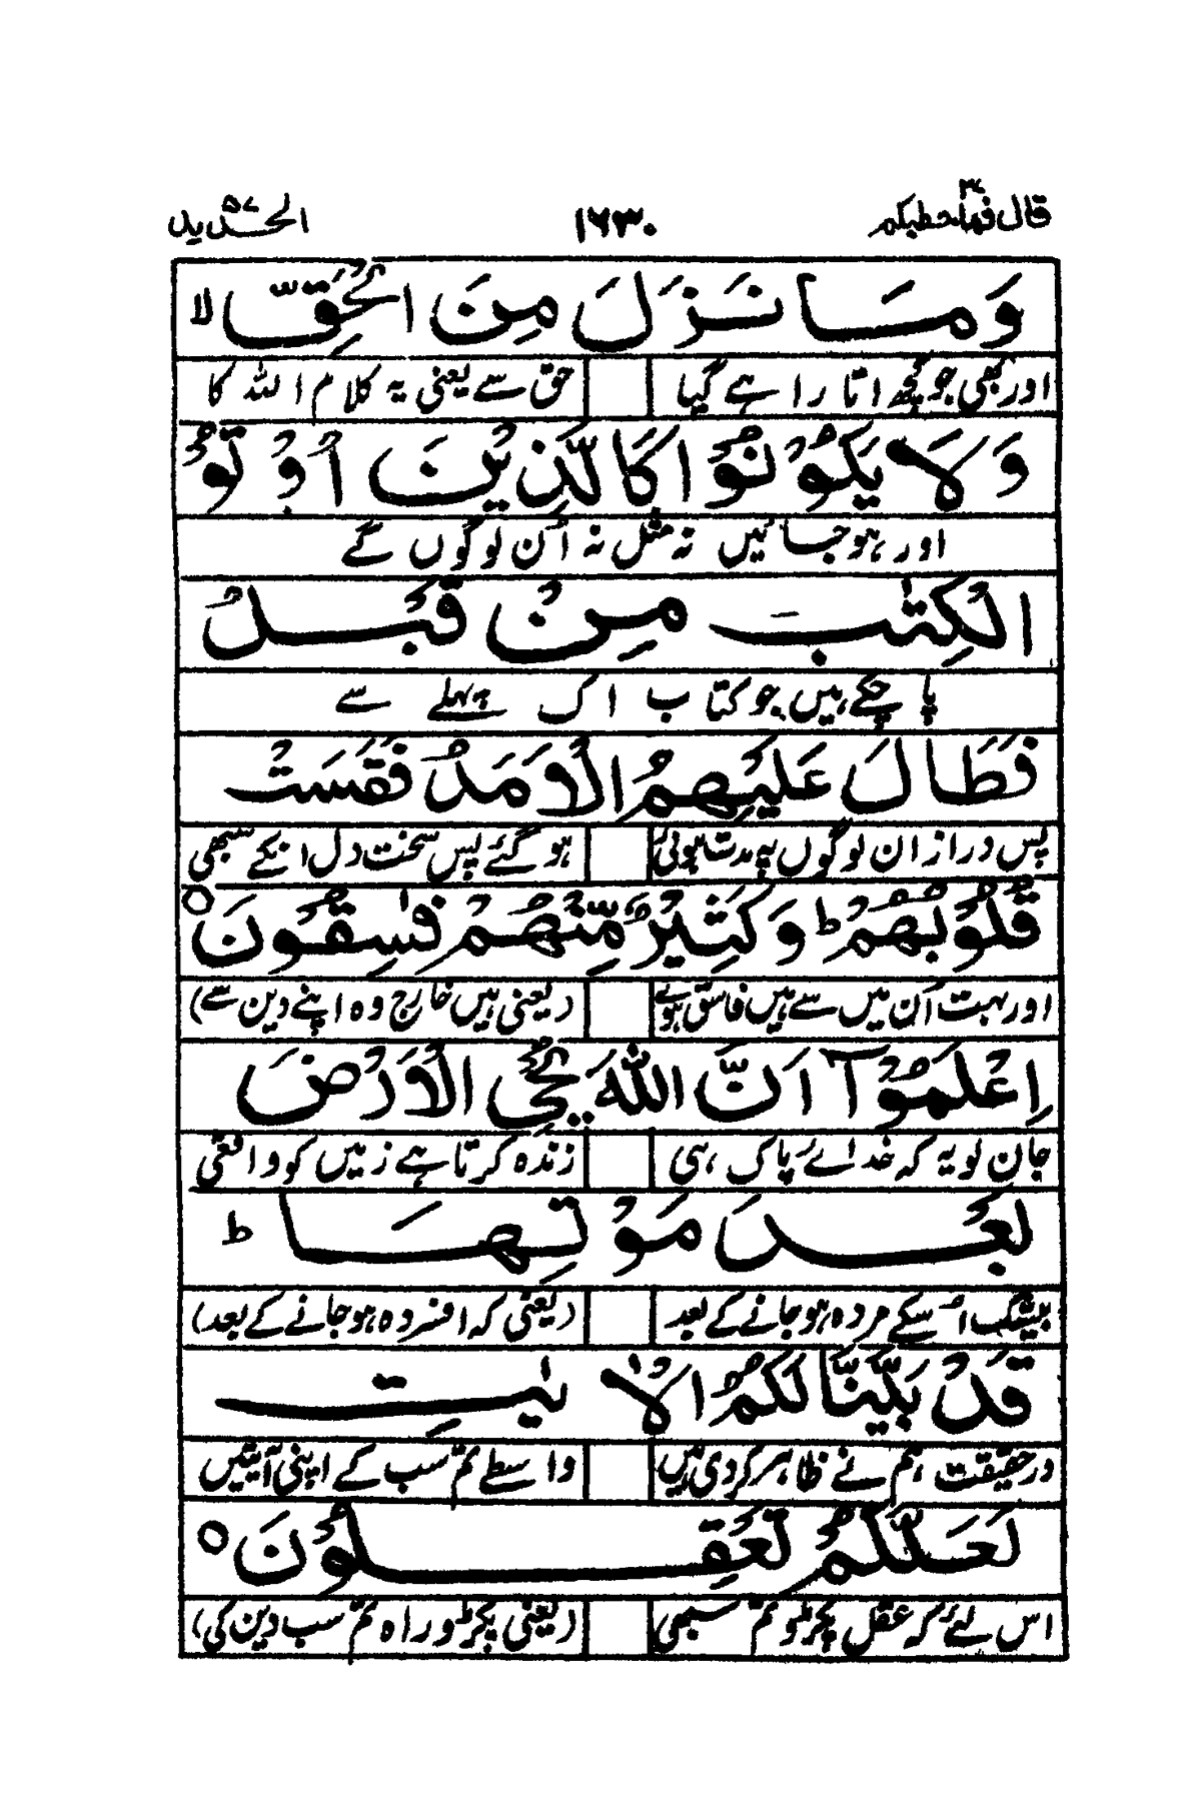 قال فما خطبكم ۲۷ ۱۶۳۰ الحديد ۵۷
وَمَا نَزَلَ مِنَ الْحَقِّ ۙ
اور بھی جو کچھ اتارا ہے گیا حق سے یعنی یہ کلام اللہ کا
وَلَا يَكُوْنُوْا كَالَّذِيْنَ اُوْتُو
اور ہو جائیں نہ مثل نہ اُن لوگوں کے
الْكِتٰبَ مِنْ قَبْلُ
پا چکے ہیں جو کتاب اک پہلے سے
فَطَالَ عَلَيْهِمُ الْاَمَدُ فَقَسَتْ
پس دراز ان لوگوں پہ مدت ہوئی ہو گئے پس سخت دل انکے سبھی
قُلُوْبُهُمْ ؕ وَكَثِيْرٌ مِّنْهُمْ فٰسِقُوْنَ ○
اور بہت اُن میں سے ہیں فاسق ہوئے (یعنی ہیں خارج وہ اپنے دین سے)
اِعْلَمُوْۤا اَنَّ اللّٰهَ يُحْيِ الْاَرْضَ
جان لو یہ کہ خدائے پاک ہی زندہ کرتا ہے زمیں کو واقعی
بَعْدَ مَوْتِهَا ؕ
بیشک اُسکے مردہ ہو جانے کے بعد (یعنی کہ افسردہ ہو جانے کے بعد)
قَدْ بَيَّنَّا لَكُمُ الْاٰيٰتِ
درحقیقت ہم نے ظاہر کر دی ہیں واسطے تم سب کے اپنی آیتیں
لَعَلَّكُمْ تَعْقِلُوْنَ ○
اس لئے کہ عقل پکڑو تم سبھی (یعنی پکڑو راہ تم سب دین کی)